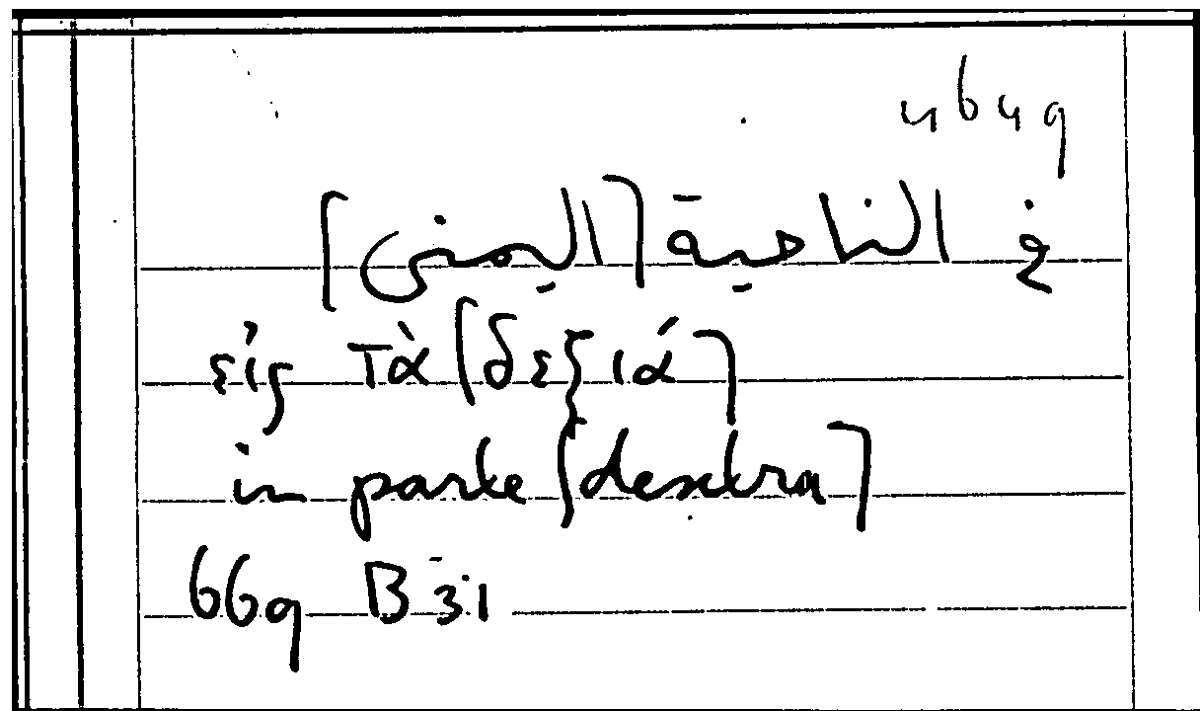 4649
في الناحية [اليمنى]
εἰς τὰ [δεξιά]
in parte [dextra]
669 B 31